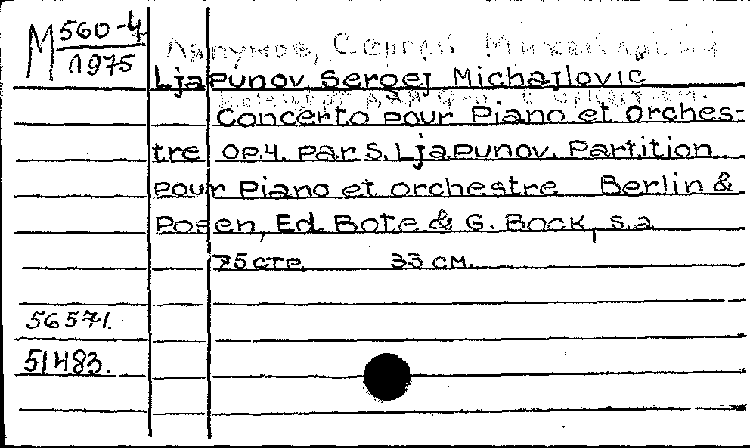 M 560-4
1975
Ляпунов, Сергей Михайлович
Ljapunov Sergej Michajlovic
Concerto pour Piano et Orches-
tre op.4. par S. Ljapunov. Partition
pour Piano et orchestre Berlin &
Posen, Ed. Bote & G. Bock, s.a
75 стр. 33 см.
56571.
51483.